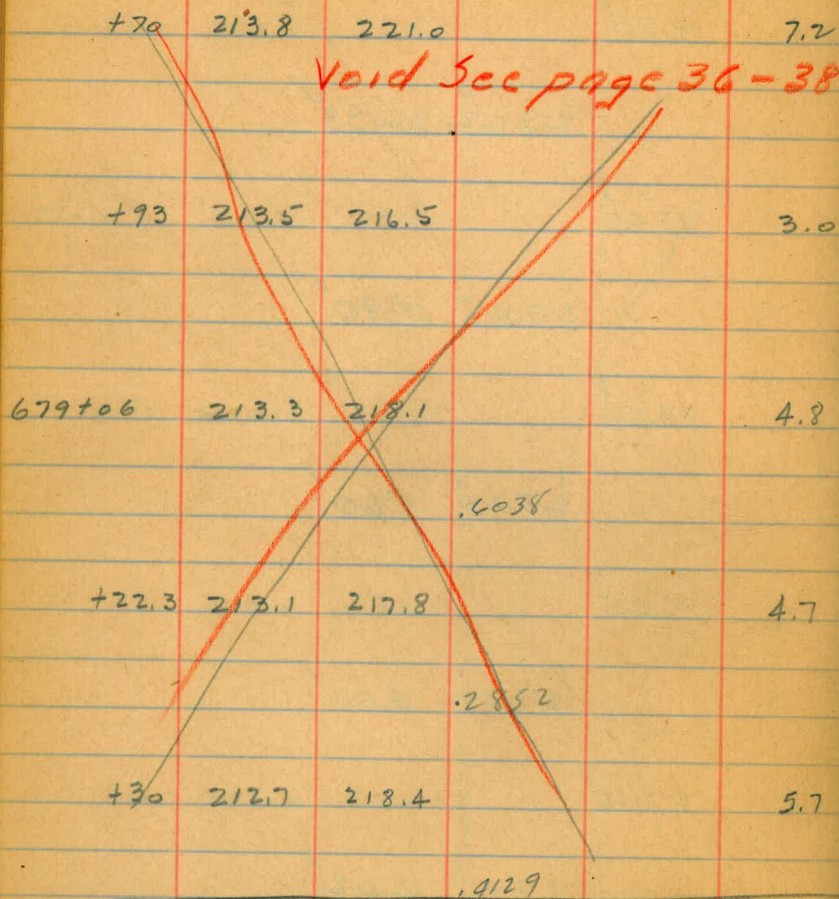 +70 213.8 221.0 7.2
Void See page 36-38
+93 213.5 216.5 3.0
679+06 213.3 218.1 4.8
.6038
+22.3 213.1 217.8 4.7
.2852
+30 212.7 218.4 5.7
.9129